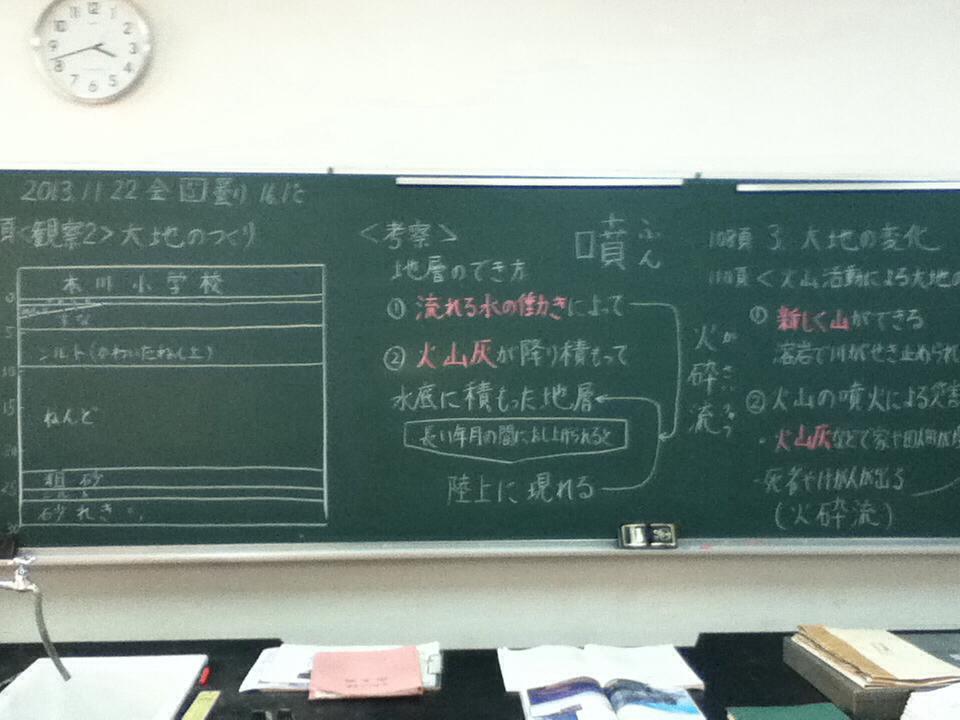 2013.11.22 金 5 曇り 16.1℃
頁<観察2>大地のつくり
本川小学校
0
すな
5
シルト(かわいたねん土)
10
15
ねんど
20
粗砂
25
シルト
砂れき
30
<考察>
地層のでき方
① 流れる水の働きによって
② 火山灰が降り積もって
水底に積もった地層
長い年月の間におし上げられると
陸上に現れる
噴
ふん
火砕流
かさいりゅう
108頁 3. 大地の変化
110頁 <火山活動による大地の
① 新しく山ができる
溶岩で川がせき止められ
② 火山の噴火による災害
・火山灰などで家や田畑が
・死者やけが人が出る
(火砕流)
12
11
10
9
8
7
6
5
4
3
2
1